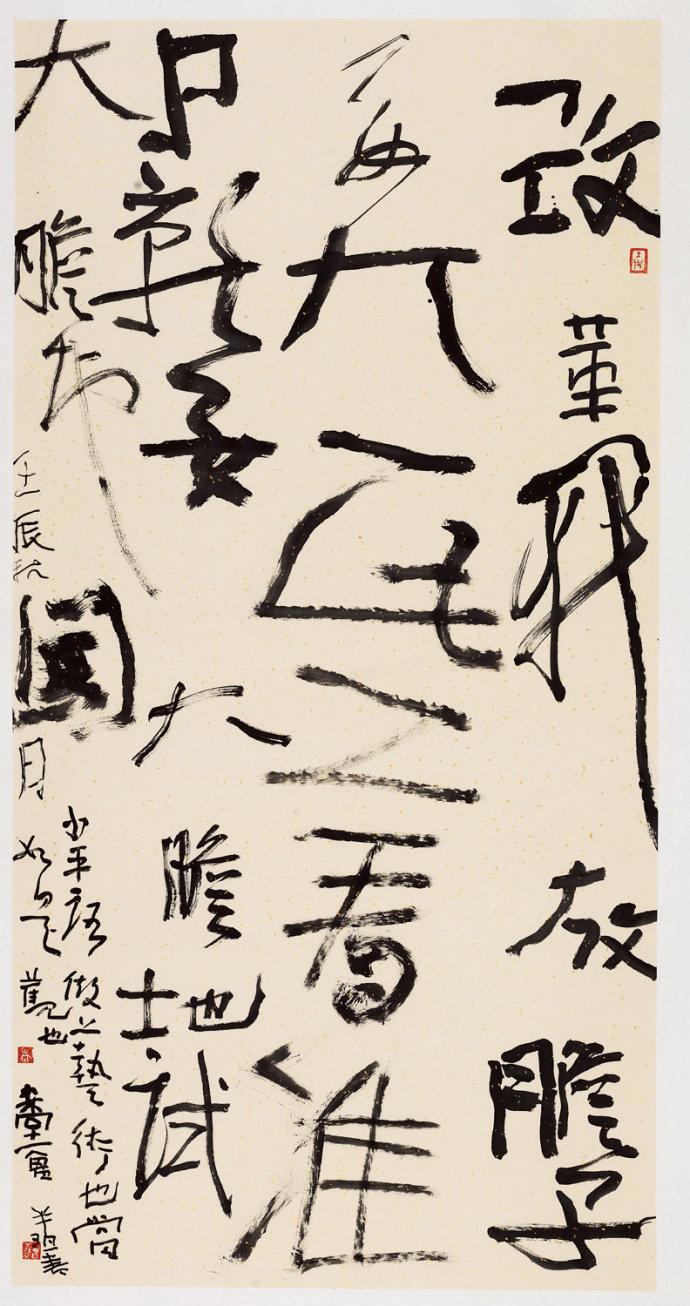 改革开放膽子
要大 之看准
就要大膽地試
大膽地闖
小平語做之藝術也當
壬辰秋月如是觀也